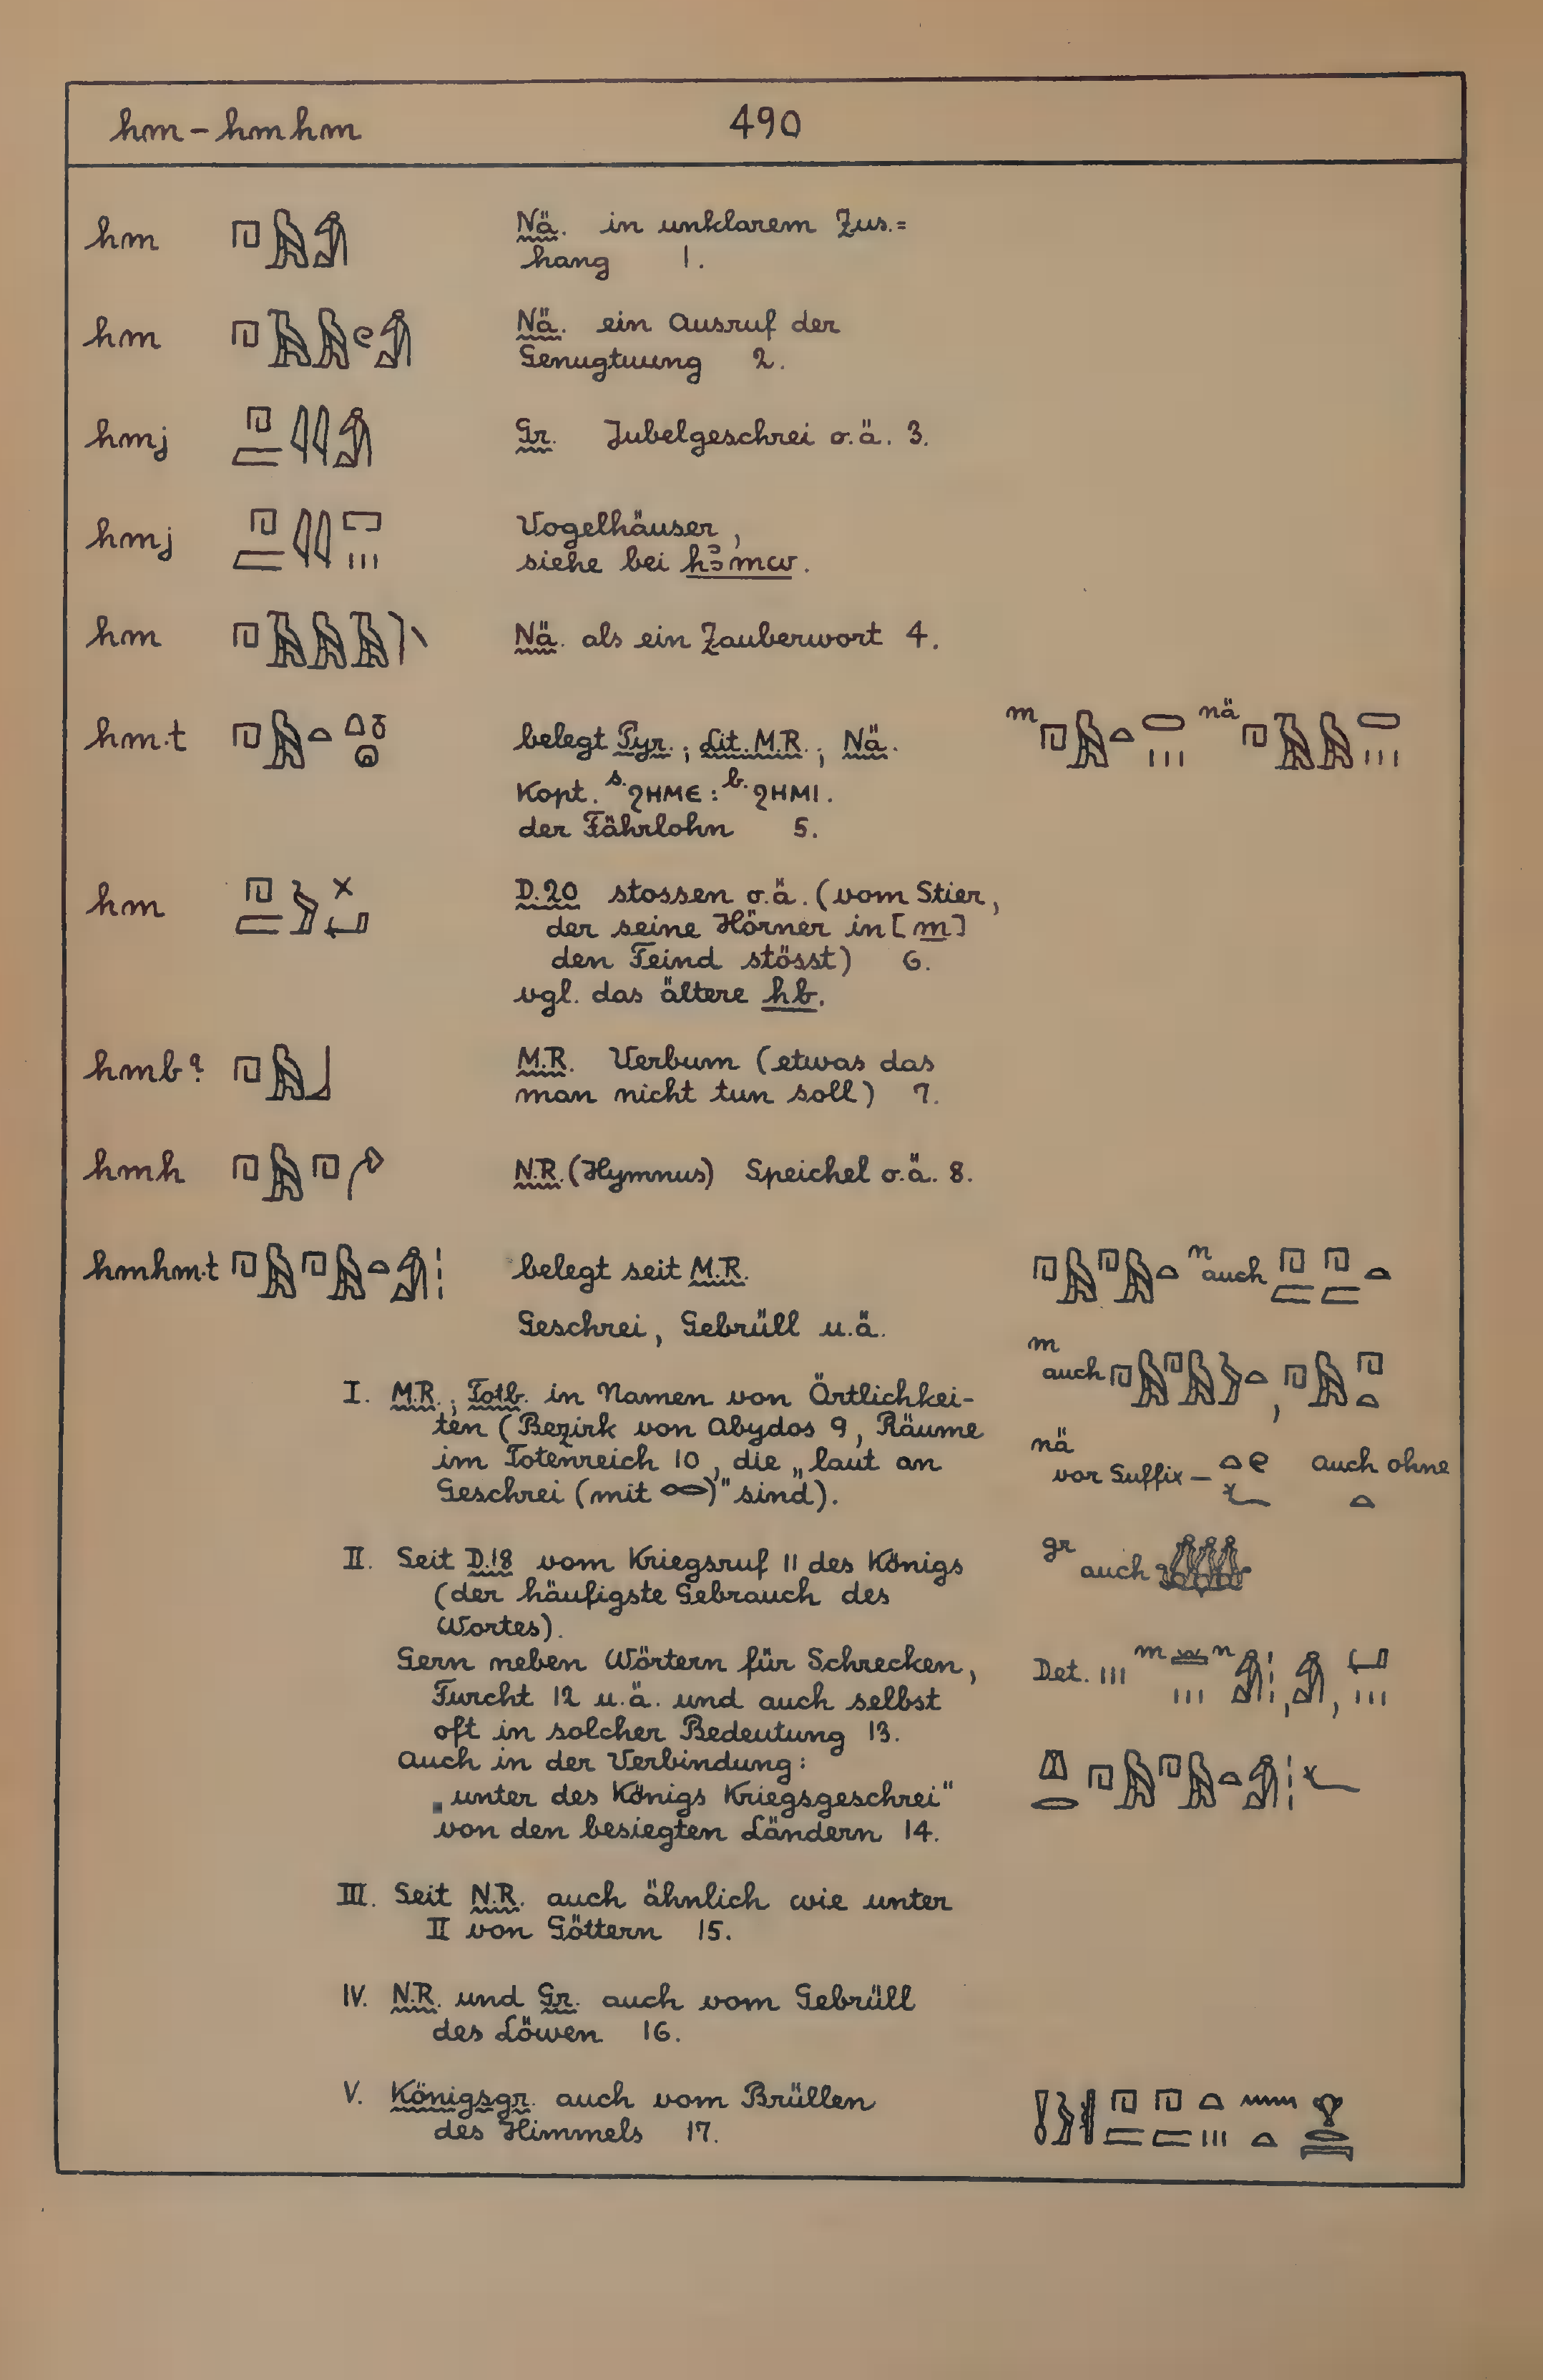 hm – hmhm 490
hm Nä. in unklarem Zus.=
hang 1.
hm Nä. ein Ausruf der
Genugtuung 2.
hmj Gr. Jubelgeschrei o.ä. 3.
hmj Vogelhäuser,
siehe bei hꜣmw.
hm Nä. als ein Zauberwort 4.
hm.t belegt Pyr.; Lit. M.R.; Nä. m nä
Kopt. s. ϩΗΜΕ : b. ϩΗΜΙ.
der Fährlohn 5.
hm D.20 stossen o.ä. (vom Stier,
der seine Hörner in [m]
den Feind stösst) 6.
vgl. das ältere hb.
hmb? M.R. Verbum (etwas das
man nicht tun soll) 7.
hmh N.R. (Hymnus) Speichel o.ä. 8.
hmhm.t belegt seit M.R.
Geschrei, Gebrüll u.ä.
I. M.R.; Totb. in Namen von Örtlichkei-
ten (Bezirk von Abydos 9, Räume
im Totenreich 10, die „laut an
Geschrei (mit )" sind).
II. Seit D.18 vom Kriegsruf 11 des Königs
(der häufigste Gebrauch des
Wortes).
Gern neben Wörtern für Schrecken,
Furcht 12 u.ä. und auch selbst
oft in solcher Bedeutung 13.
Auch in der Verbindung:
„unter des Königs Kriegsgeschrei"
von den besiegten Ländern 14.
III. Seit N.R. auch ähnlich wie unter
II von Göttern 15.
IV. N.R. und Gr. auch vom Gebrüll
des Löwen 16.
V. Königsgr. auch vom Brüllen
des Himmels 17.
n auch
m
auch ,
nä
vor Suffix – auch ohne
gr
auch
Det. m n , ,